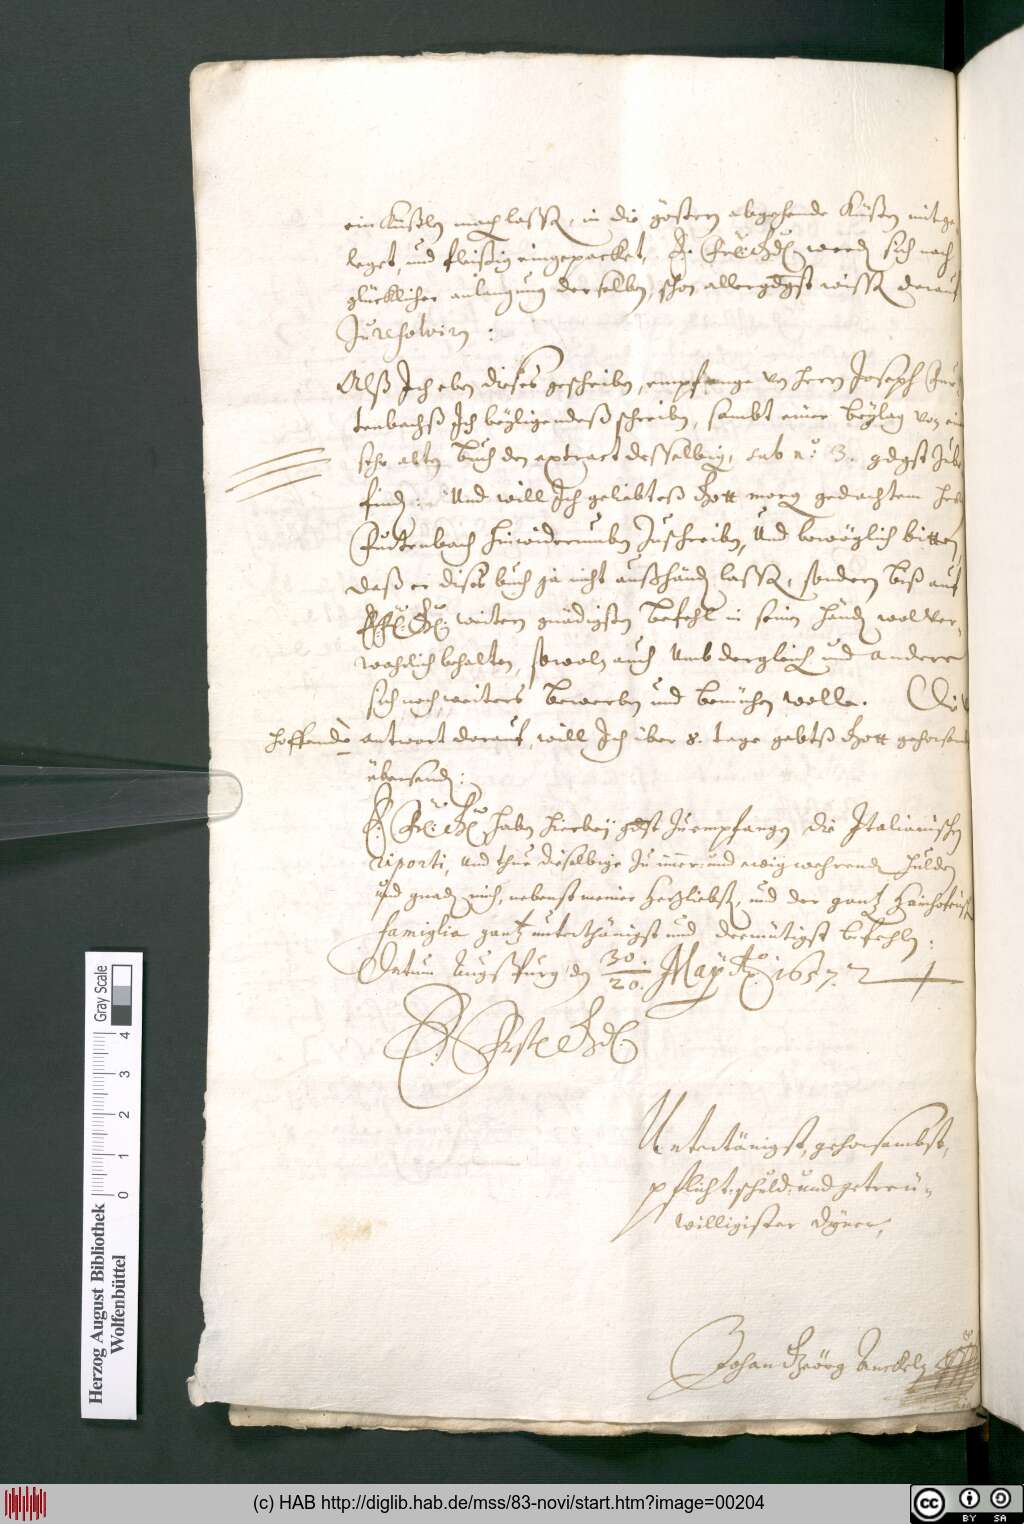 ein Küstlen machen lassen, in die gestern abgehende Küsten mit ge-
leget, und fleißig eingepacket, E. Frl: Gd: werden sich nach
glücklicher anlangung derselben, schon allergdgst wissen darauf
Zu resolvirn :
Alß Ich eben dises geschriben, empfange von herrn Joseph Fur-
tenbachß Ich beyligendeß schreiben, sambt einer beylag von ein
sehr alten Buch den extract desselbigen, sub n.o 3. gdgst Zube-
finden : Und will Ich geliebteß Gott morgen gedachtem herrn
Furtenbach hinwiderumben Zuschreiben, Und beweglich bitten,
daß er dises buch ja nicht außhänden lassen, sondern biß auf
E. Frl: Gd: weitern gnädigsten Befehl in seinen händen wol ver-
wahrlich behalten, sowoln auch umb dergleichen und andere
sich noch weiters bewerben und bemühen wolle. Die
hoffende antwort darauf, will Ich über 8. tage gebts Gott gehorsamb
übersenden :
E. Frl: Gd: haben hierbey gdgst Zu empfangen die Italianischen
riporti, und thue dieselbige Zu immer und ewig wehrenden hulden
und gnaden mich, nebenst meiner herzliebsten, und der gantzen Hainhoferischen
famiglia gantz unterthänigst und demütigst befehlen :
Datum Augspurg den 30./20. May A.o 1657.
E. Frstl Gd:
Untertänigst, gehorsambst,
pflicht, schuld: und getreü-
willigister dyener,
Johan Georg Anckel
Herzog August Bibliothek
Wolfenbüttel
0 1 2 3 4
Gray Scale
(c) HAB http://diglib.hab.de/mss/83-novi/start.htm?image=00204
cc BY SA